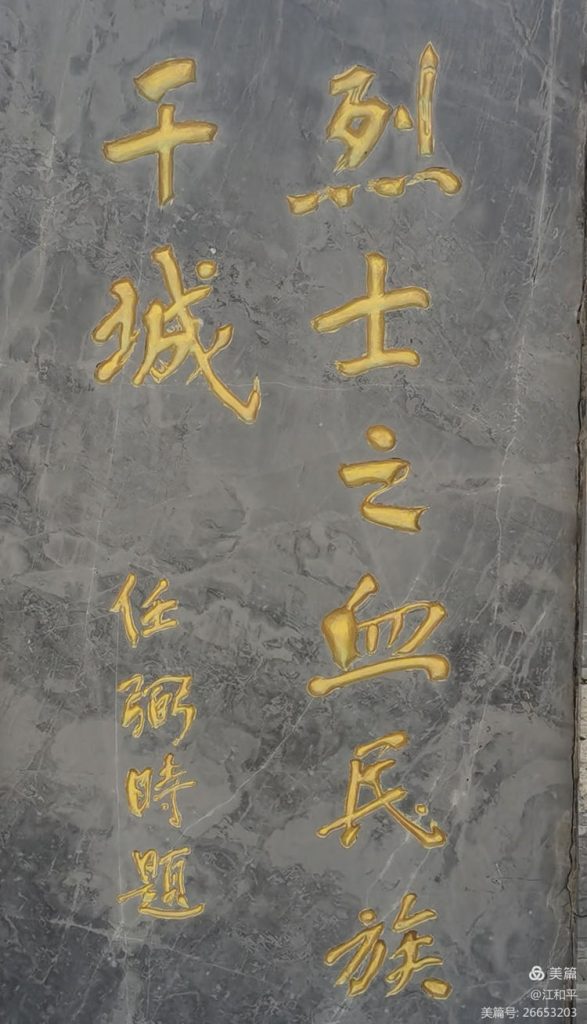 烈士之血民族
干城
任弼時題
美篇
@江和平
美篇号: 26653203